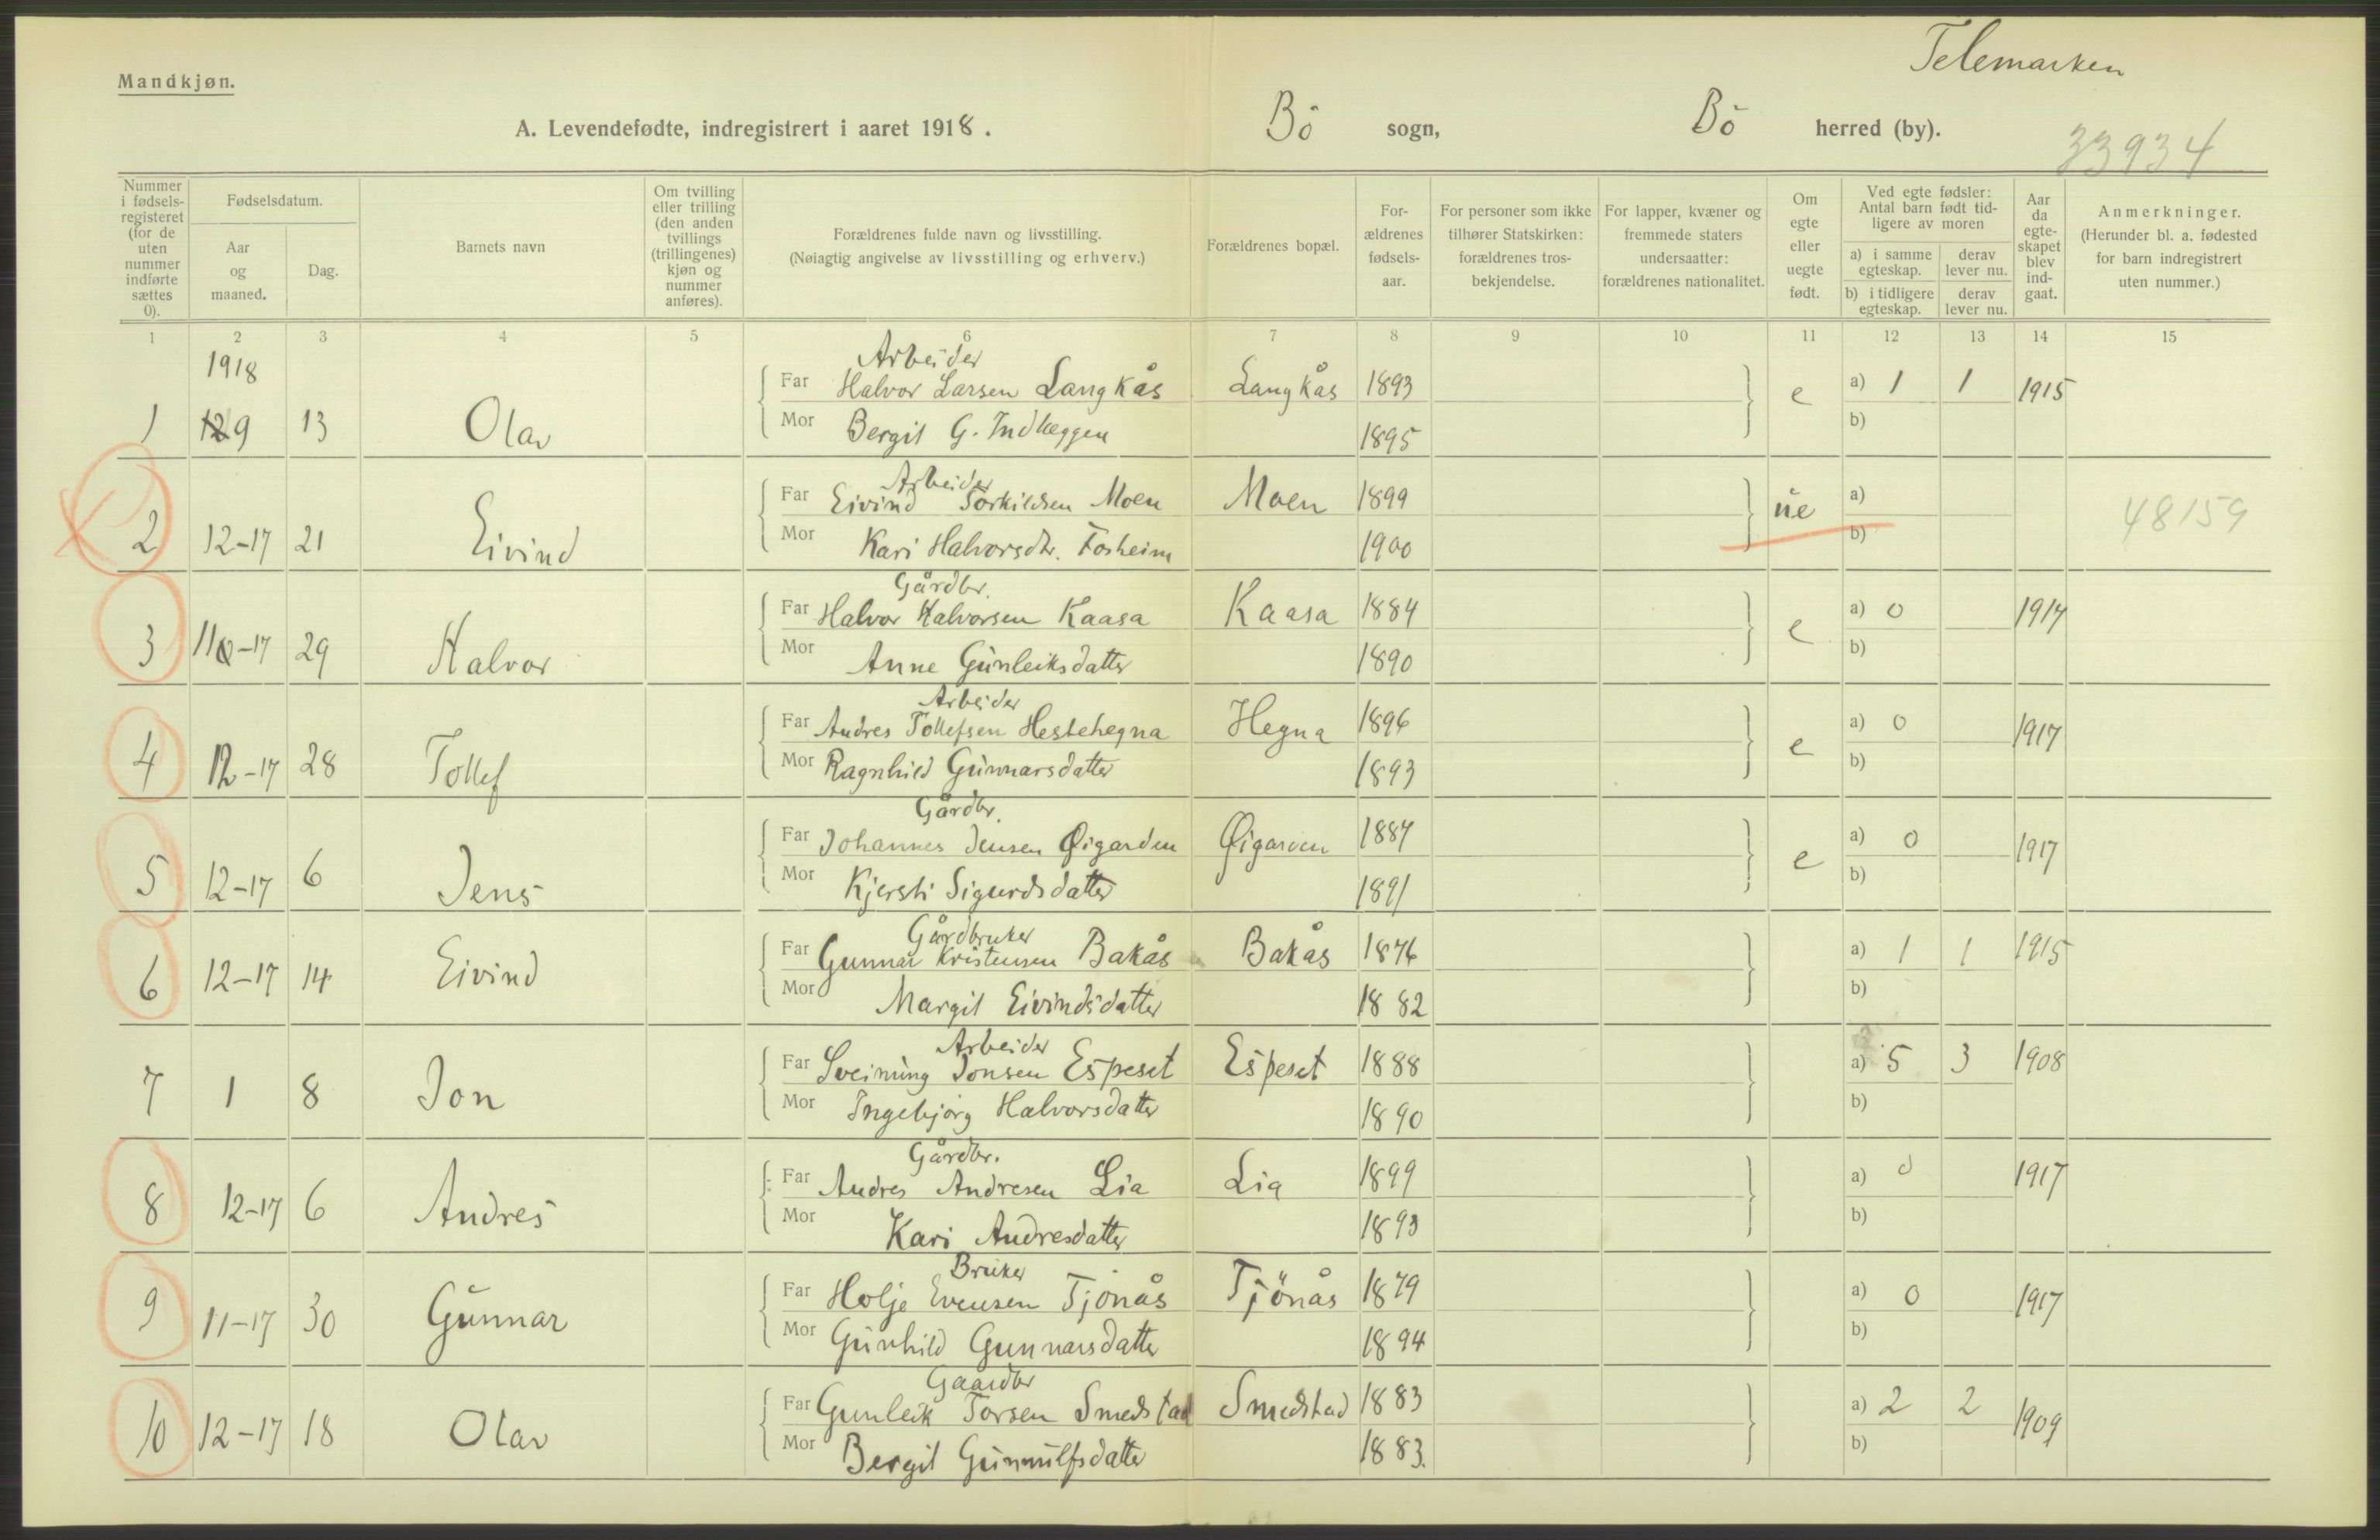 Telemarken
Mandkjøn.
A. Levendefødte, indregistrert i aaret 1918. Bö sogn, Bö herred (by).
33934
Nummer i fødselsregisteret (for de uten nummer indførte sættes 0).
Fødselsdatum.
Aar og maaned.
Dag.
Barnets navn
Om tvilling eller trilling (den anden tvillings (trillingenes) kjøn og nummer anføres).
Forældrenes fulde navn og livsstilling.
(Nøiagtig angivelse av livsstilling og erhverv.)
Forældrenes bopæl.
Forældrenes fødselsaar.
For personer som ikke tilhører Statskirken: forældrenes trosbekjendelse.
For lapper, kvæner og fremmede staters undersaatter: forældrenes nationalitet.
Om egte eller uegte født.
Ved egte fødsler: Antal barn født tidligere av moren
a) i samme egteskap. derav lever nu.
b) i tidligere egteskap. derav lever nu.
Aar da egteskapet blev indgaat.
Anmerkninger.
(Herunder bl. a. fødested for barn indregistrert uten nummer.)
1 2 3 4 5 6 7 8 9 10 11 12 13 14 15
1918
Arbeider
Far Halvor Larsen Langkås Langkås 1893 e a) 1 1 1915
1 9 13 Olav
Mor Bergit G. Indlæggen 1895 b)
Arbeider
Far Eivind Torkildsen Moen Moen 1899 ue a) 48159
2 12-17 21 Eivind
Mor Kari Halvorsdtr. Fosheim 1900 b)
Gårdbr.
Far Halvor Halvorsen Kaasa Kaasa 1884 e a) 0 1917
3 11-17 29 Halvor
Mor Anne Gunleiksdatter 1890 b)
Arbeider
Far Andres Tollefsen Hestehegna Hegna 1896 e a) 0 1917
4 12-17 28 Tollef
Mor Ragnhild Gunnarsdatter 1893 b)
Gårdbr.
Far Johannes Jensen Øigarden Øigarden 1887 e a) 0 1917
5 12-17 6 Jens
Mor Kjersti Sigurdsdatter 1891 b)
Gårdbruker
Far Gunnar Kristensen Bakås Bakås 1876 a) 1 1 1915
6 12-17 14 Eivind
Mor Margit Eivindsdatter 1882 b)
Arbeider
Far Sveinung Jonsen Espeset Espeset 1888 a) 5 3 1908
7 1 8 Jon
Mor Ingebjörg Halvorsdatter 1890 b)
Gårdbr.
Far Andres Andresen Lia Lia 1899 a) 0 1917
8 12-17 6 Andres
Mor Kari Andresdatter 1893 b)
Bruker
Far Holje Evensen Tjönås Tjönås 1879 a) 0 1917
9 11-17 30 Gunnar
Mor Gunhild Gunnarsdatter 1894 b)
Gaardbr
Far Gunleik Torsen Smedstad Smedstad 1883 a) 2 2 1909
10 12-17 18 Olav
Mor Bergit Gunnulfsdatter 1883. b)